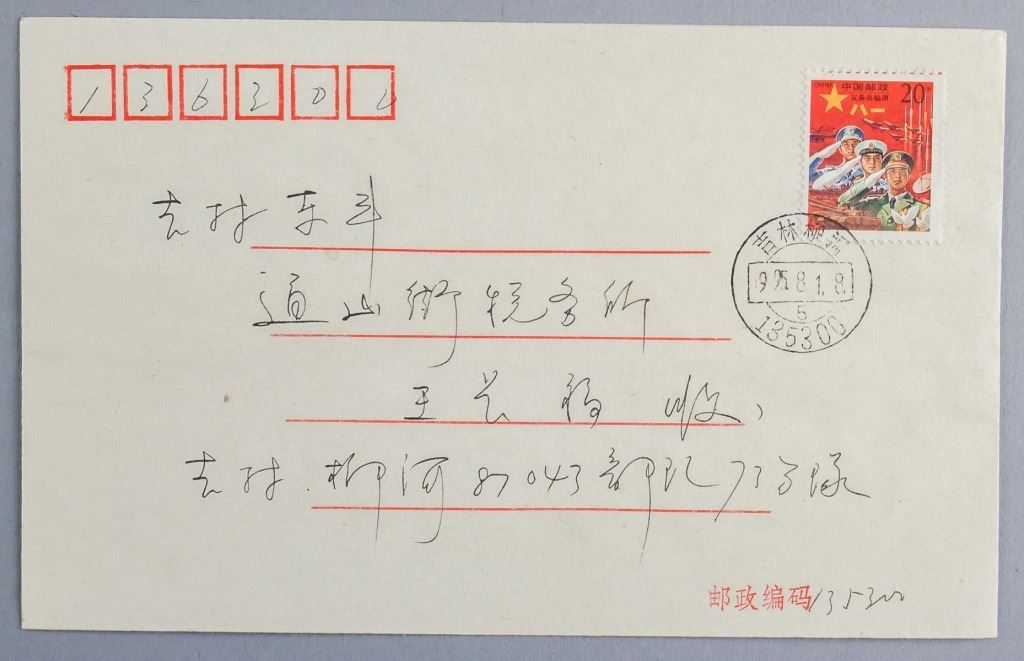 136202
CHINA 中国邮政
义务兵贴用
20分
八一
吉林 东丰
吉林柳河
1995.8.1.8.
5
135300
道山街税务所
王长福 收
吉林.柳河87043部队73分队
邮政编码135300